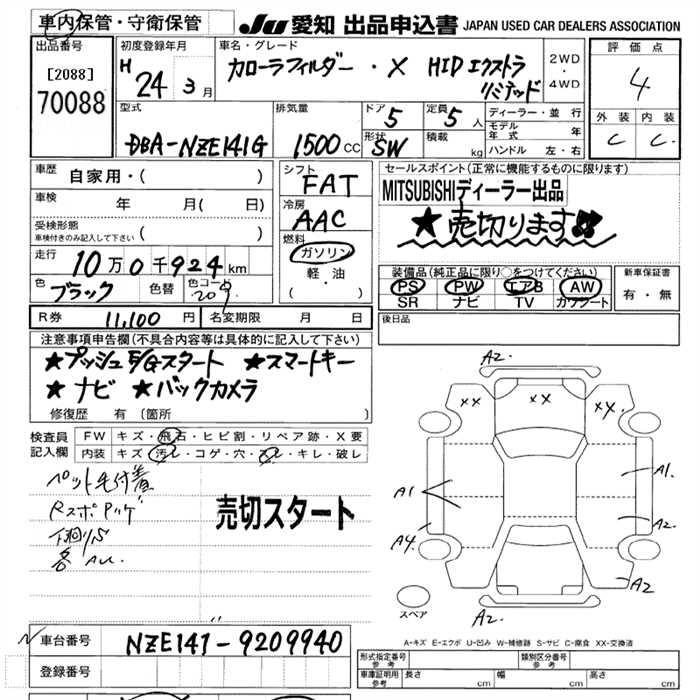 車内保管・守衛保管
JU 愛知 出品申込書 JAPAN USED CAR DEALERS ASSOCIATION
出品番号
[2088]
70088
初度登録年月
H 24 3月
車名・グレード
カローラフィルダー・X HIDエクストラ
リミテッド
2WD
・
4WD
評価点
4
外装 内装
C C
型式
DBA-NZE141G
排気量
1500cc
ドア 5
形状 SW
定員 5人
積載 kg
ディーラー・並行
モデル年式 年
ハンドル 左・右
車歴 自家用・( )
車検 年 月( 日)
受検形態
車検付きのみ記入して下さい ( )
走行 10万0千924km
色 ブラック 色替 色コード 209
シフト
FAT
冷房
AAC
燃料
ガソリン
軽・油
( )
セールスポイント(正常に機能するものに限ります)
MITSUBISHIディーラー出品
★売切ります!!
装備品(純正品に限り○をつけてください)
PS PW エアB AW
SR ナビ TV カワシート
新車保証書
有・無
R券 11,100円 名変期限 月 日
後日品
注意事項申告欄(不具合内容等は具体的に記入して下さい)
★プッシュE/Gスタート ★スマートキー
★ナビ ★バックカメラ
修復歴 有 (箇所 )
検査員
記入欄
FW キズ・飛石・ヒビ割・リペア跡・X要
内装 キズ・汚レ・コゲ・穴・スレ・キレ・破レ
ペット毛付着
売切スタート
A2.
XX XX XX.
A1 A1.
A2.
A4.
A2
A2.
スペア
A-キズ E-エクボ U-凹み W-補修跡 S-サビ C-腐食 XX-交換済
車台番号 NZE141-9209940
登録番号
形式指定番号
参考
類別区分番号
参考
車庫証明用
参考
長さ cm 幅 cm 高さ cm